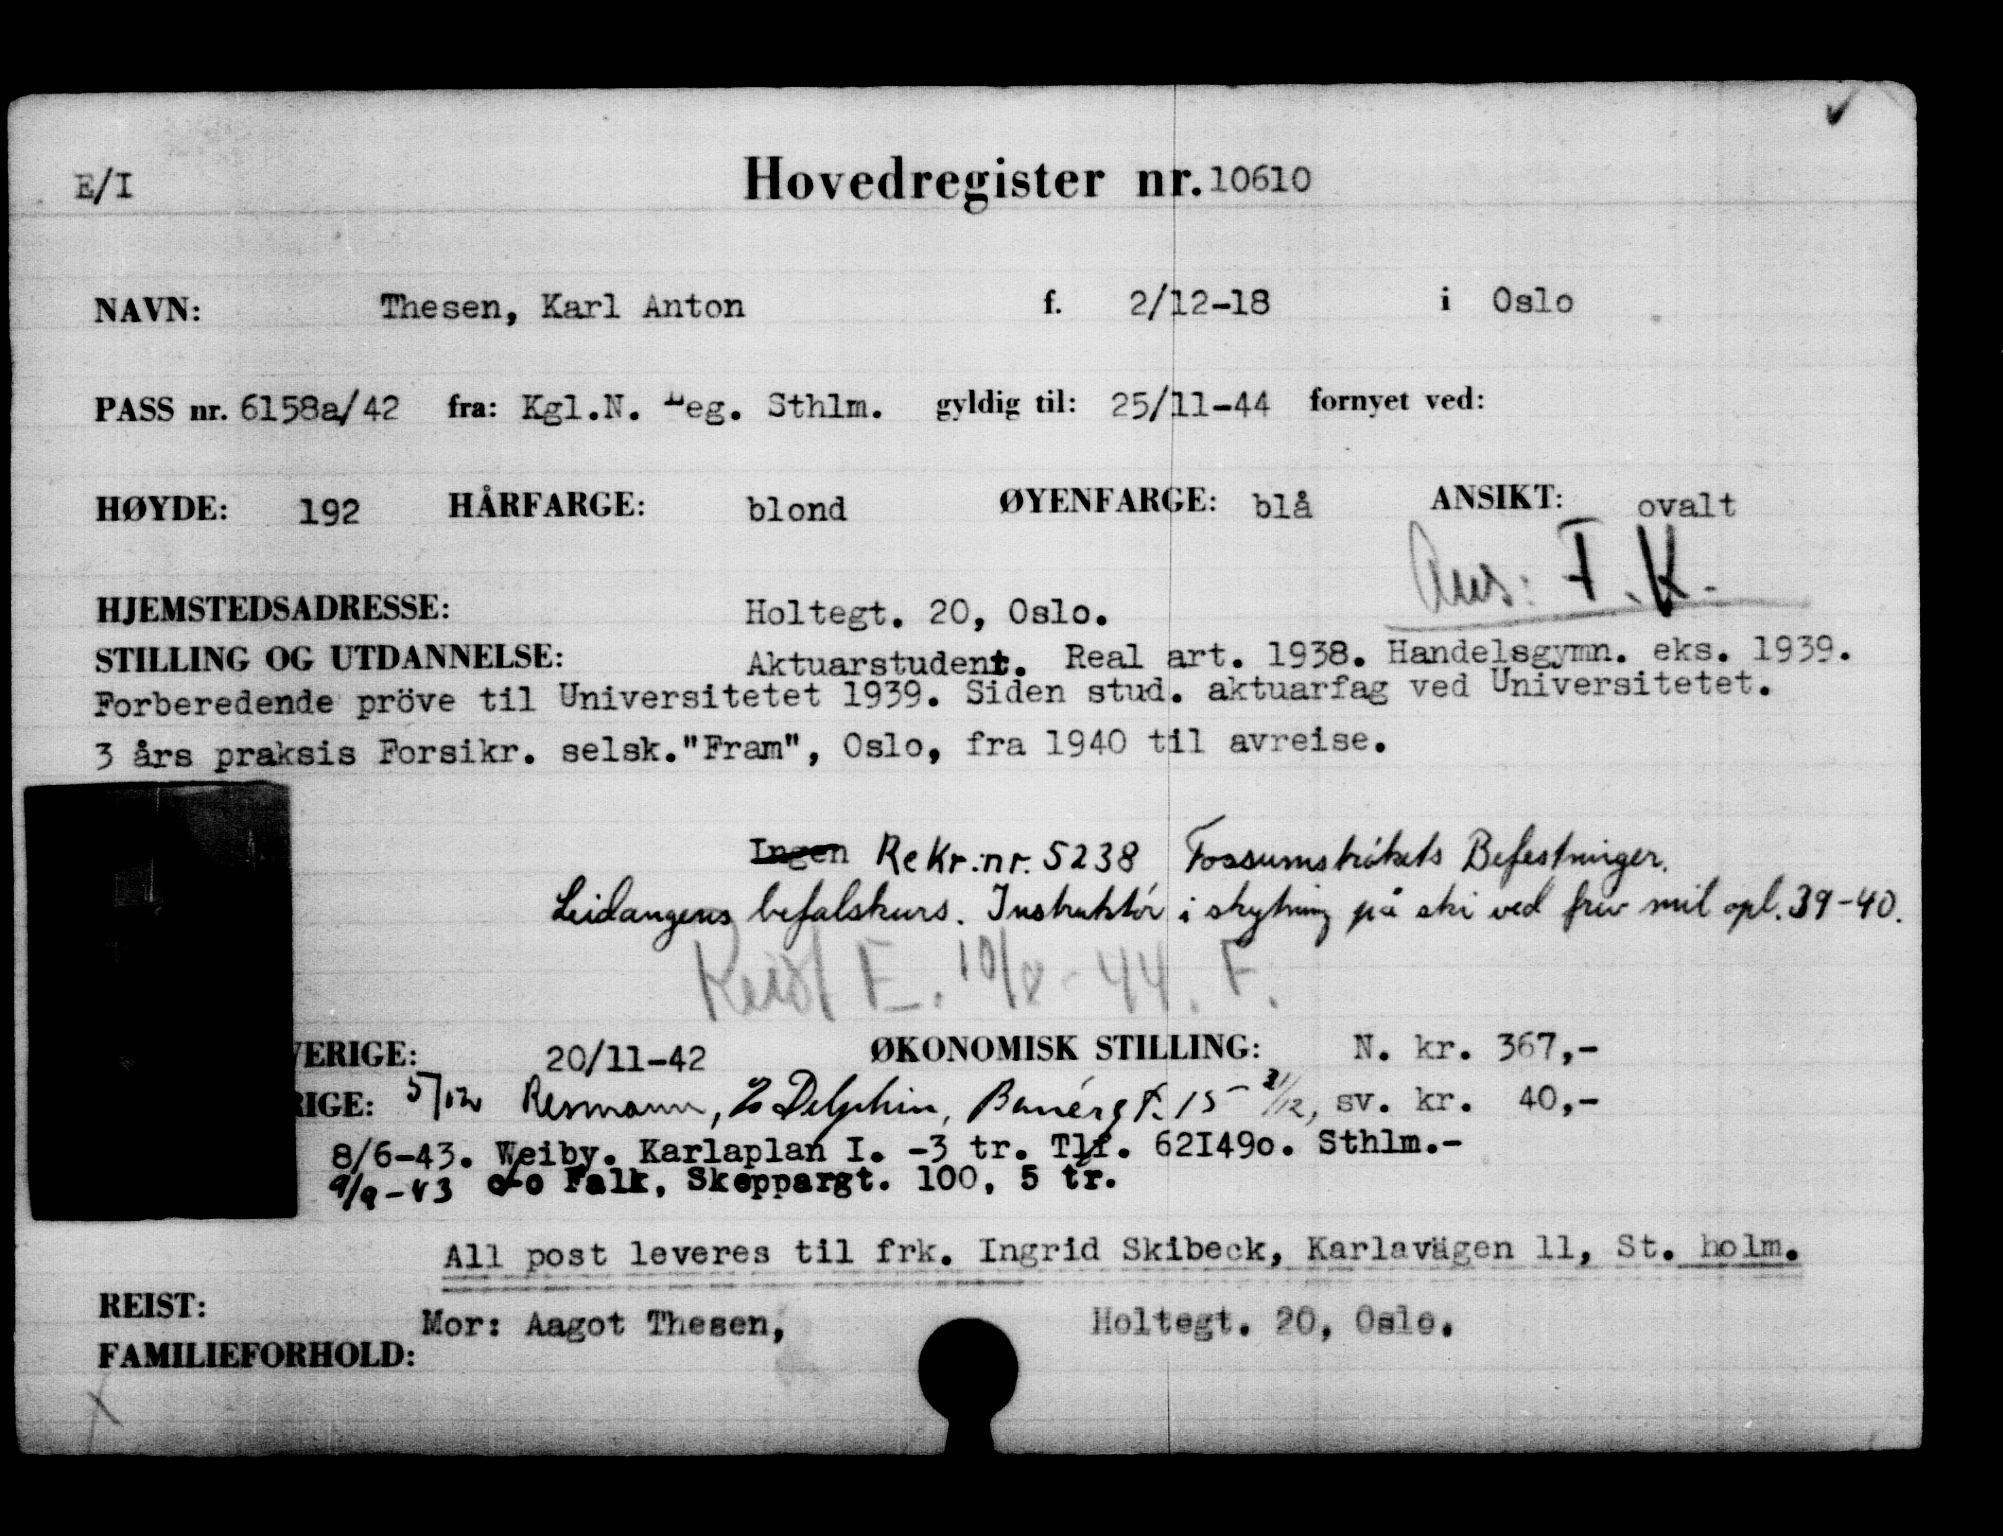 E/I
Hovedregister nr. 10610
NAVN: Thesen, Karl Anton f. 2/12-18 i Oslo
PASS nr. 6158a/42 fra: Kgl.N. Leg. Sthlm. gyldig til: 25/11-44 fornyet ved:
HØYDE: 192 HÅRFARGE: blond ØYENFARGE: blå ANSIKT: ovalt
Ans: F.K.
HJEMSTEDSADRESSE: Holtegt. 20, Oslo.
STILLING OG UTDANNELSE: Aktuarstudent. Real art. 1938. Handelsgymn. eks. 1939.
Forberedende pröve til Universitetet 1939. Siden stud. aktuarfag ved Universitetet.
3 års praksis Forsikr. selsk."Fram", Oslo, fra 1940 til avreise.
Ingen Rekr.nr. 5238 Fossumstrøkets Befestninger.
Leidangens befalskurs. Instruktør i skytning på ski ved friv mil opl. 39-40.
Reist E. 10/8-44. F.
VERIGE: 20/11-42 ØKONOMISK STILLING: N. kr. 367,-
RIGE: 5/12 Resmann, c/o Delphin, Banérgt. 15 - /12, sv. kr. 40,-
8/6-43. Weiby. Karlaplan I. -3 tr. Tlf. 62I49o. Sthlm.-
9/9-43 c/o Falk, Skeppargt. 100, 5 tr.
All post leveres til frk. Ingrid Skibeck, Karlavägen 11, St. holm.
REIST:
Mor: Aagot Thesen, Holtegt. 20, Oslo.
FAMILIEFORHOLD: